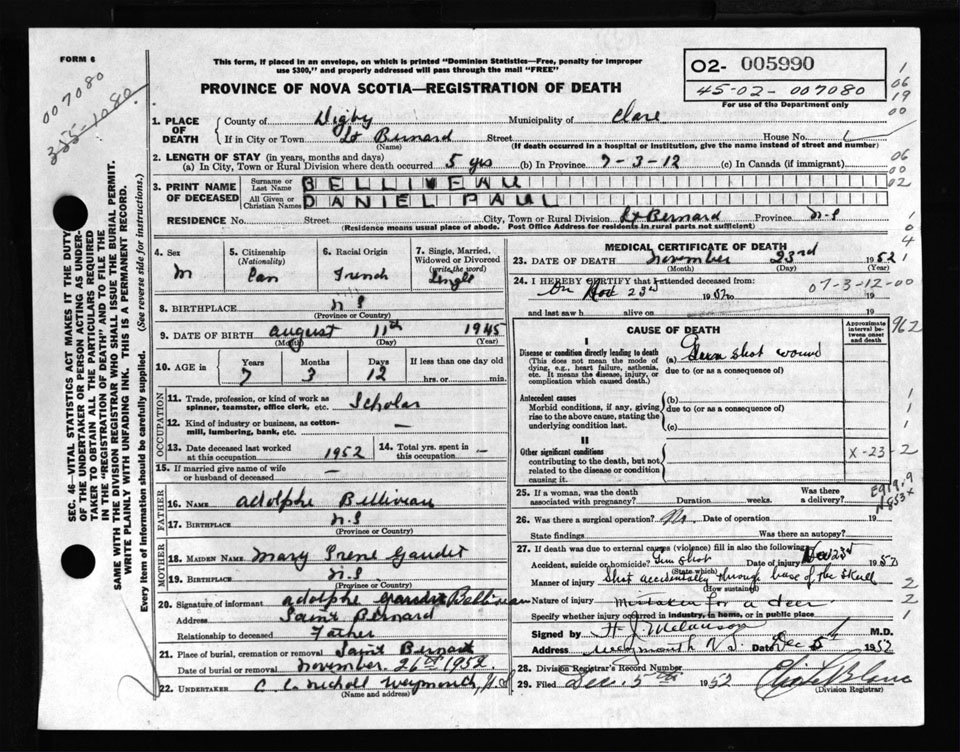 FORM 6
This form, if placed in an envelope, on which is printed "Dominion Statistics—Free, penalty for improper
use $300," and properly addressed will pass through the mail "FREE"
O2- 005990
45-02- 007080
For use of the Department only
007080
PROVINCE OF NOVA SCOTIA—REGISTRATION OF DEATH
1. PLACE OF DEATH
County of Digby Municipality of Clare
If in City or Town St Bernard Street House No.
(Name) (If death occurred in a hospital or institution, give the name instead of street and number)
2. LENGTH OF STAY (in years, months and days)
(a) In City, Town or Rural Division where death occurred 5 yrs (b) In Province 7-3-12 (c) In Canada (if immigrant)
3. PRINT NAME OF DECEASED
Surname or Last Name BELLIVEAU
All Given or Christian Names DANIEL PAUL
RESIDENCE No. Street City, Town or Rural Division St Bernard Province N-S
(Residence means usual place of abode. Post Office Address for residents in rural parts not sufficient)
4. Sex M
5. Citizenship (Nationality) Can
6. Racial Origin French
7. Single, Married, Widowed or Divorced (write the word) Single
8. BIRTHPLACE N S
(Province or Country)
9. DATE OF BIRTH August 11th 1945
(Month) (Day) (Year)
10. AGE in Years 7 Months 3 Days 12 If less than one day old hrs. or min.
OCCUPATION
11. Trade, profession, or kind of work as spinner, teamster, office clerk, etc. Scholar
12. Kind of industry or business, as cotton-mill, lumbering, bank, etc. —
13. Date deceased last worked at this occupation 1952
14. Total yrs. spent in this occupation —
15. If married give name of wife or husband of deceased —
FATHER
16. NAME Adolphe Belliveau
17. BIRTHPLACE N-S
(Province or Country)
MOTHER
18. MAIDEN NAME Mary Irene Gaudet
19. BIRTHPLACE N-S
(Province or Country)
20. Signature of informant Adolphe Belliveau
Address Saint Bernard
Relationship to deceased Father
21. Place of burial, cremation or removal Saint Bernard
Date of burial or removal November 26th 1952
22. UNDERTAKER C L Nicholl Weymouth, N.S
(Name and address)
MEDICAL CERTIFICATE OF DEATH
23. DATE OF DEATH November 23rd 1952
(Month) (Day) (Year)
24. I HEREBY CERTIFY that I attended deceased from:
On Nov 23rd 1952 07-3-12-00
and last saw h alive on 19
CAUSE OF DEATH
Approximate interval between onset and death
I
Disease or condition directly leading to death
(This does not mean the mode of dying, e.g., heart failure, asthenia, etc. It means the disease, injury, or complication which caused death.)
(a) Gun shot wound
due to (or as a consequence of)
Antecedent causes
Morbid conditions, if any, giving rise to the above cause, stating the underlying condition last.
(b)
due to (or as a consequence of)
(c)
II
Other significant conditions
contributing to the death, but not related to the disease or condition causing it.
X-23-2
962
25. If a woman, was the death associated with pregnancy? Duration weeks. Was there a delivery?
E919.9
26. Was there a surgical operation? No. Date of operation 19
State findings Was there an autopsy?
27. If death was due to external causes (violence) fill in also the following:
Accident, suicide or homicide? Gun Shot Date of injury Nov 23rd 1952
(State which)
Manner of injury Shot accidentally through base of the skull
(How sustained)
Nature of injury Mistaken for a deer
Specify whether injury occurred in industry, in home, or in public place
Signed by H J Melanson M.D.
Address Weymouth N S. Date Dec 5th 1952
28. Division Registrar's Record Number
29. Filed Dec. 5th 1952
(Division Registrar)
SEC. 46—VITAL STATISTICS ACT MAKES IT THE DUTY
OF THE UNDERTAKER OR PERSON ACTING AS UNDER-
TAKER TO OBTAIN ALL THE PARTICULARS REQUIRED
IN THE "REGISTRATION OF DEATH" AND TO FILE THE
SAME WITH THE DIVISION REGISTRAR WHO SHALL ISSUE THE BURIAL PERMIT.
WRITE PLAINLY WITH UNFADING INK. THIS IS A PERMANENT RECORD.
Every item of information should be carefully supplied. (See reverse side for instructions.)